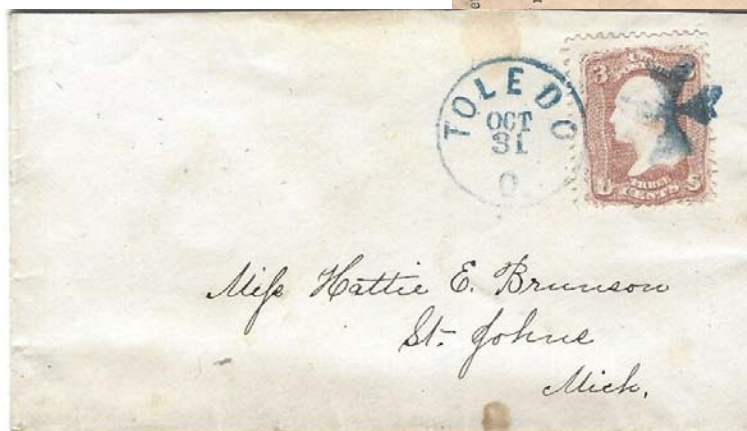 TOLEDO
OCT
31
O
3
U THREE S
CENTS
Miſs Hattie E. Brunson
St. Johns
Mich.